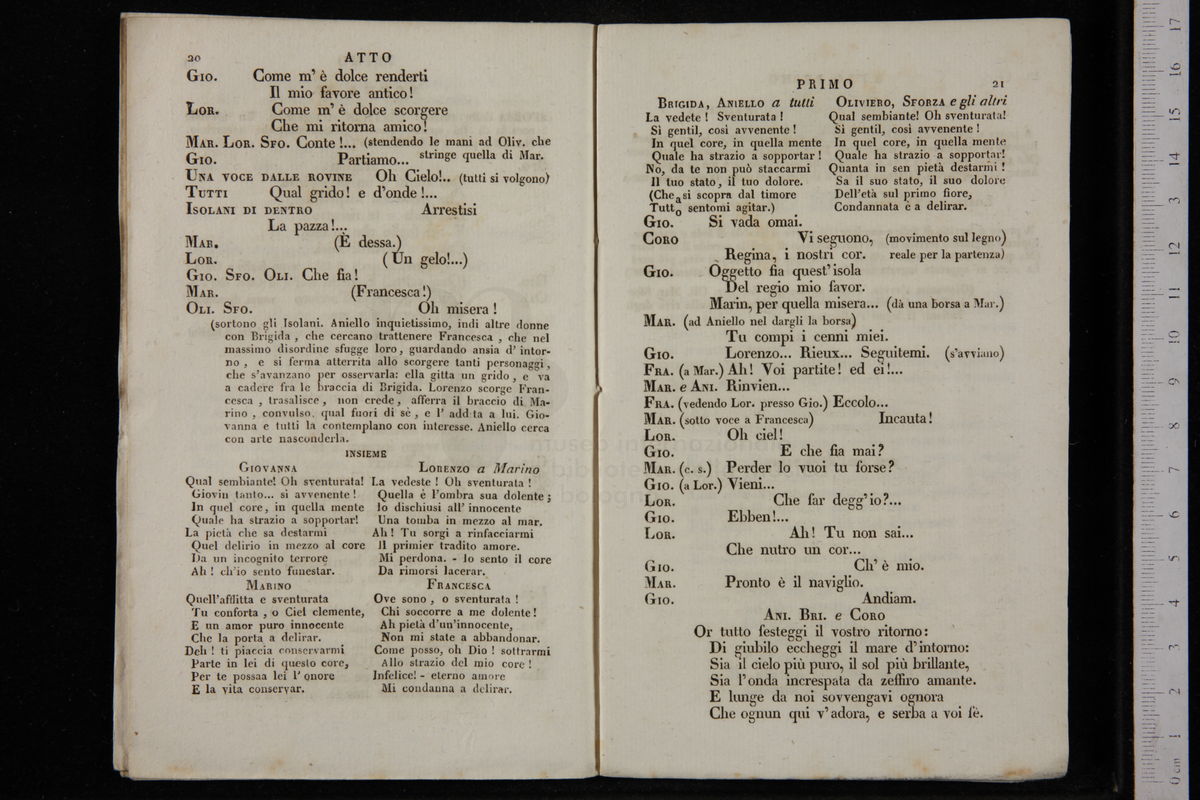 20 ATTO
GIO. Come m' è dolce renderti
Il mio favore antico!
LOR. Come m' è dolce scorgere
Che mi ritorna amico!
MAR. LOR. SFO. Conte!... (stendendo le mani ad Oliv. che
GIO. Partiamo... stringe quella di Mar.
UNA VOCE DALLE ROVINE Oh Cielo!.. (tutti si volgono)
TUTTI Qual grido! e d'onde!...
ISOLANI DI DENTRO Arrestisi
La pazza!...
MAR. (È dessa.)
LOR. (Un gelo!...)
GIO. SFO. OLI. Che fia!
MAR. (Francesca!)
OLI. SFO. Oh misera!
(sortono gli Isolani. Aniello inquietissimo, indi altre donne
con Brigida, che cercano trattenere Francesca, che nel
massimo disordine sfugge loro, guardando ansia d' intor-
no, e si ferma atterrita allo scorgere tanti personaggi,
che s'avanzano per osservarla: ella gitta un grido, e va
a cadere fra le braccia di Brigida. Lorenzo scorge Fran-
cesca, trasalisce, non crede, afferra il braccio di Ma-
rino, convulso, qual fuori di sè, e l' addita a lui. Gio-
vanna e tutti la contemplano con interesse. Aniello cerca
con arte nasconderla.
INSIEME
GIOVANNA
Qual sembiante! Oh sventurata!
Giovin tanto... sì avvenente!
In quel core, in quella mente
Quale ha strazio a sopportar!
La pietà che sa destarmi
Quel delirio in mezzo al core
Da un incognito terrore
Ah! ch'io sento funestar.
MARINO
Quell'afflitta e sventurata
Tu conforta, o Ciel clemente,
E un amor puro innocente
Che la porta a delirar.
Deh! ti piaccia conservarmi
Parte in lei di questo core,
Per te possaa lei l' onore
E la vita conservar.
LORENZO a Marino
La vedeste! Oh sventurata!
Quella è l'ombra sua dolente;
Io dischiusi all' innocente
Una tomba in mezzo al mar.
Ah! Tu sorgi a rinfacciarmi
Il primier tradito amore.
Mi perdona. - Io sento il core
Da rimorsi lacerar.
FRANCESCA
Ove sono, o sventurata!
Chi soccorre a me dolente!
Ah pietà d'un'innocente,
Non mi state a abbandonar.
Come posso, oh Dio! sottrarmi
Allo strazio del mio core!
Infelice! - eterno amore
Mi condanna a delirar.
PRIMO 21
BRIGIDA, ANIELLO a tutti
La vedete! Sventurata!
Sì gentil, così avvenente!
In quel core, in quella mente
Quale ha strazio a sopportar!
No, da te non può staccarmi
Il tuo stato, il tuo dolore.
(Che a si scopra dal timore
Tutto sentomi agitar.)
OLIVIERO, SFORZA e gli altri
Qual sembiante! Oh sventurata!
Sì gentil, così avvenente!
In quel core, in quella mente
Quale ha strazio a sopportar!
Quanta in sen pietà destarmi!
Sa il suo stato, il suo dolore
Dell'età sul primo fiore,
Condannata è a delirar.
GIO. Si vada omai.
CORO Vi seguono, (movimento sul legno)
Regina, i nostri cor. reale per la partenza)
GIO. Oggetto fia quest' isola
Del regio mio favor.
Marin, per quella misera... (dà una borsa a Mar.)
MAR. (ad Aniello nel dargli la borsa)
Tu compi i cenni miei.
GIO. Lorenzo... Rieux... Seguitemi. (s'avviano)
FRA. (a Mar.) Ah! Voi partite! ed ei!...
MAR. e ANI. Rinvien...
FRA. (vedendo Lor. presso Gio.) Eccolo...
MAR. (sotto voce a Francesca) Incauta!
LOR. Oh ciel!
GIO. E che fia mai?
MAR. (c. s.) Perder lo vuoi tu forse?
GIO. (a Lor.) Vieni...
LOR. Che far degg' io?...
GIO. Ebben!...
LOR. Ah! Tu non sai...
Che nutro un cor...
GIO. Ch' è mio.
MAR. Pronto è il naviglio.
GIO. Andiam.
ANI. BRI. e CORO
Or tutto festeggi il vostro ritorno:
Di giubilo eccheggi il mare d' intorno:
Sia il cielo più puro, il sol più brillante,
Sia l' onda increspata da zeffiro amante.
E lunge da noi sovvengavi ognora
Che ognun qui v' adora, e serba a voi fè.